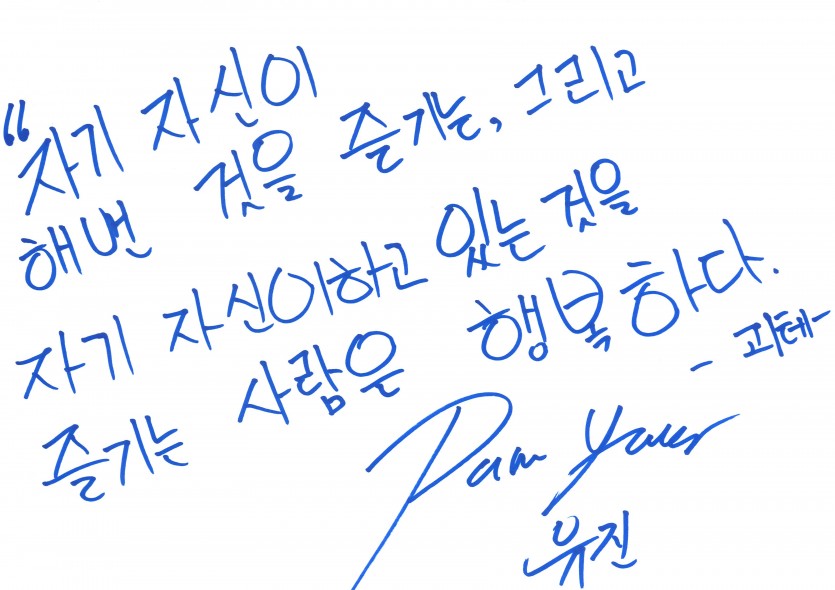 “자기 자신이
해변 것을 즐기는, 그리고
자기 자신이하고 있는 것을
즐기는 사람은 행복하다.
- 괴테-
유진